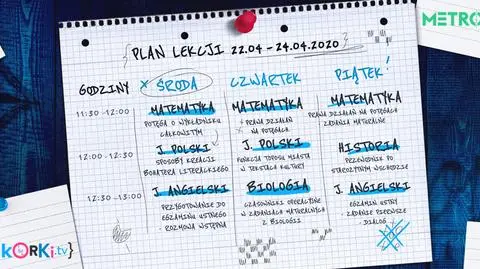 METRO
{PLAN LEKCJI 22.04 - 24.04.2020}
GODZINY
× ŚRODA
CZWARTEK
PIĄTEK!
11:30 - 12:00
MATEMATYKA
POTĘGA O WYKŁADNIKU
CAŁKOWITYM
MATEMATYKA
PRAWA DZIAŁAŃ
NA POTĘGACH
MATEMATYKA
PRAWA DZIAŁAŃ NA POTĘGACH
ZADANIA MATURALNE
12:00 - 12:30
J. POLSKI
SPOSOBY KREACJI
BOHATERA LITERACKIEGO
J. POLSKI
FUNKCJA TOPOSU MIASTA
W TEKSTACH KULTURY
HISTORIA
PRZEWODNIK PO
STAROŻYTNYM WSCHODZIE
12:30 - 13:00
J. ANGIELSKI
PRZYGOTOWANIE DO
EGZAMINU USTNEGO
- ROZMOWA WSTĘPNA
BIOLOGIA
CZASOWNIKI OPERACYJNE
W ZADANIACH MATURALNYCH
Z BIOLOGII
J. ANGIELSKI
EGZAMIN USTNY
- ZADANIE PIERWSZE
- DIALOG
{KORKi.tv}